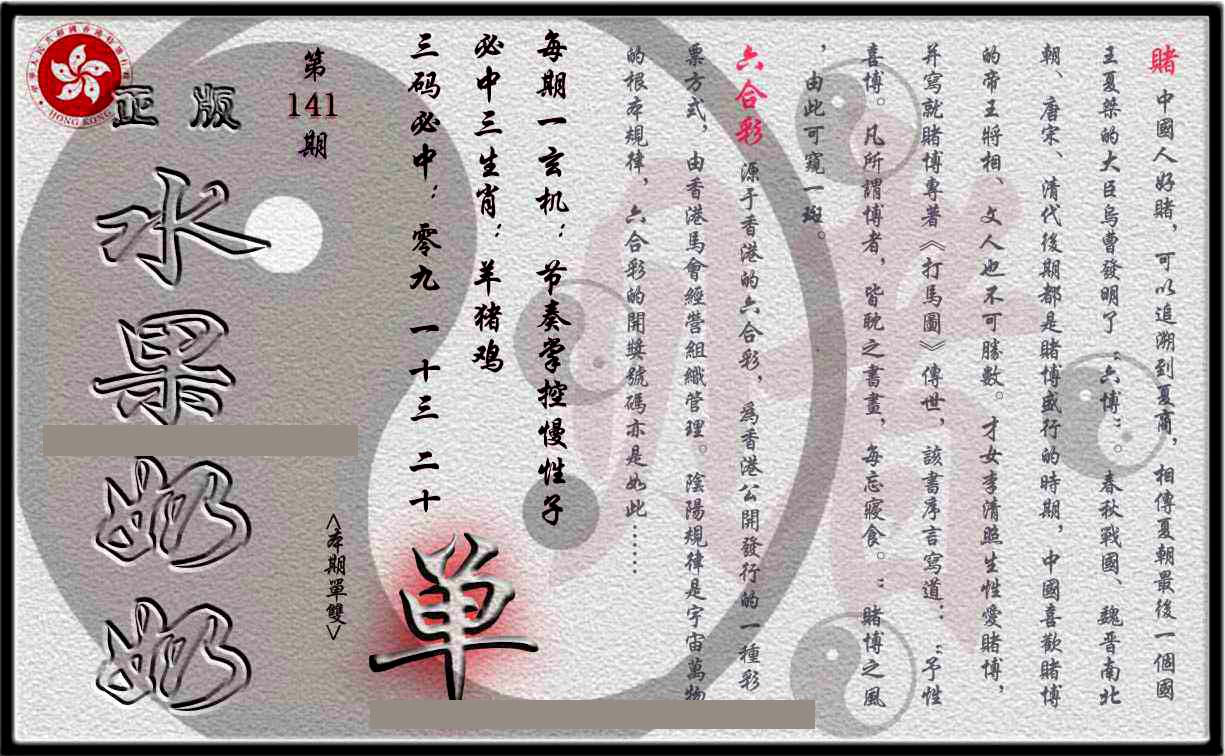 賭 中國人好賭，可以追溯到夏商，相傳夏朝最後一個國
王夏桀的大臣烏曹發明了“六博”。春秋戰國、魏晋南北
朝、唐宋、清代後期都是賭博盛行的時期，中國喜歡賭博
的帝王將相、文人也不可勝數。才女李清照生性愛賭博，
并寫就賭博專著《打馬圖》傳世，該書序言寫道：“予性
喜博。凡所謂博者，皆耽之書畫，每忘寢食。”賭博之風
，由此可窺一斑。
六合彩 源于香港的六合彩，為香港公開發行的一種彩
票方式，由香港馬會經營組織管理。陰陽規律是宇宙萬物
的根本規律，六合彩的開獎號碼亦是如此……
每期一玄机：节奏掌控慢性子
必中三生肖：羊猪鸡
三码必中：零九 一十三 二十
第
141
期
<本期單雙>
单
正版
水果奶奶
HONG KONG